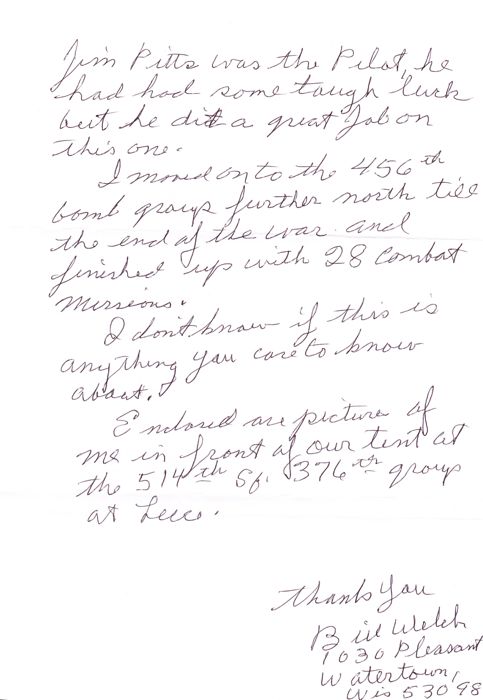 Jim Pitts was the Pilot, he
had had some tough luck
but he did a great Job on
this one.
I moved on to the 456th
bomb group further north till
the end of the war and
finished up with 28 combat
missions.
I don't know if this is
anything you care to know
about.
Enclosed are picture of
me in front of our tent at
the 514th Sq. 376th group
at Lecce.
Thanks You
Bill Welch
1030 Pleasant
Watertown,
Wis 53098